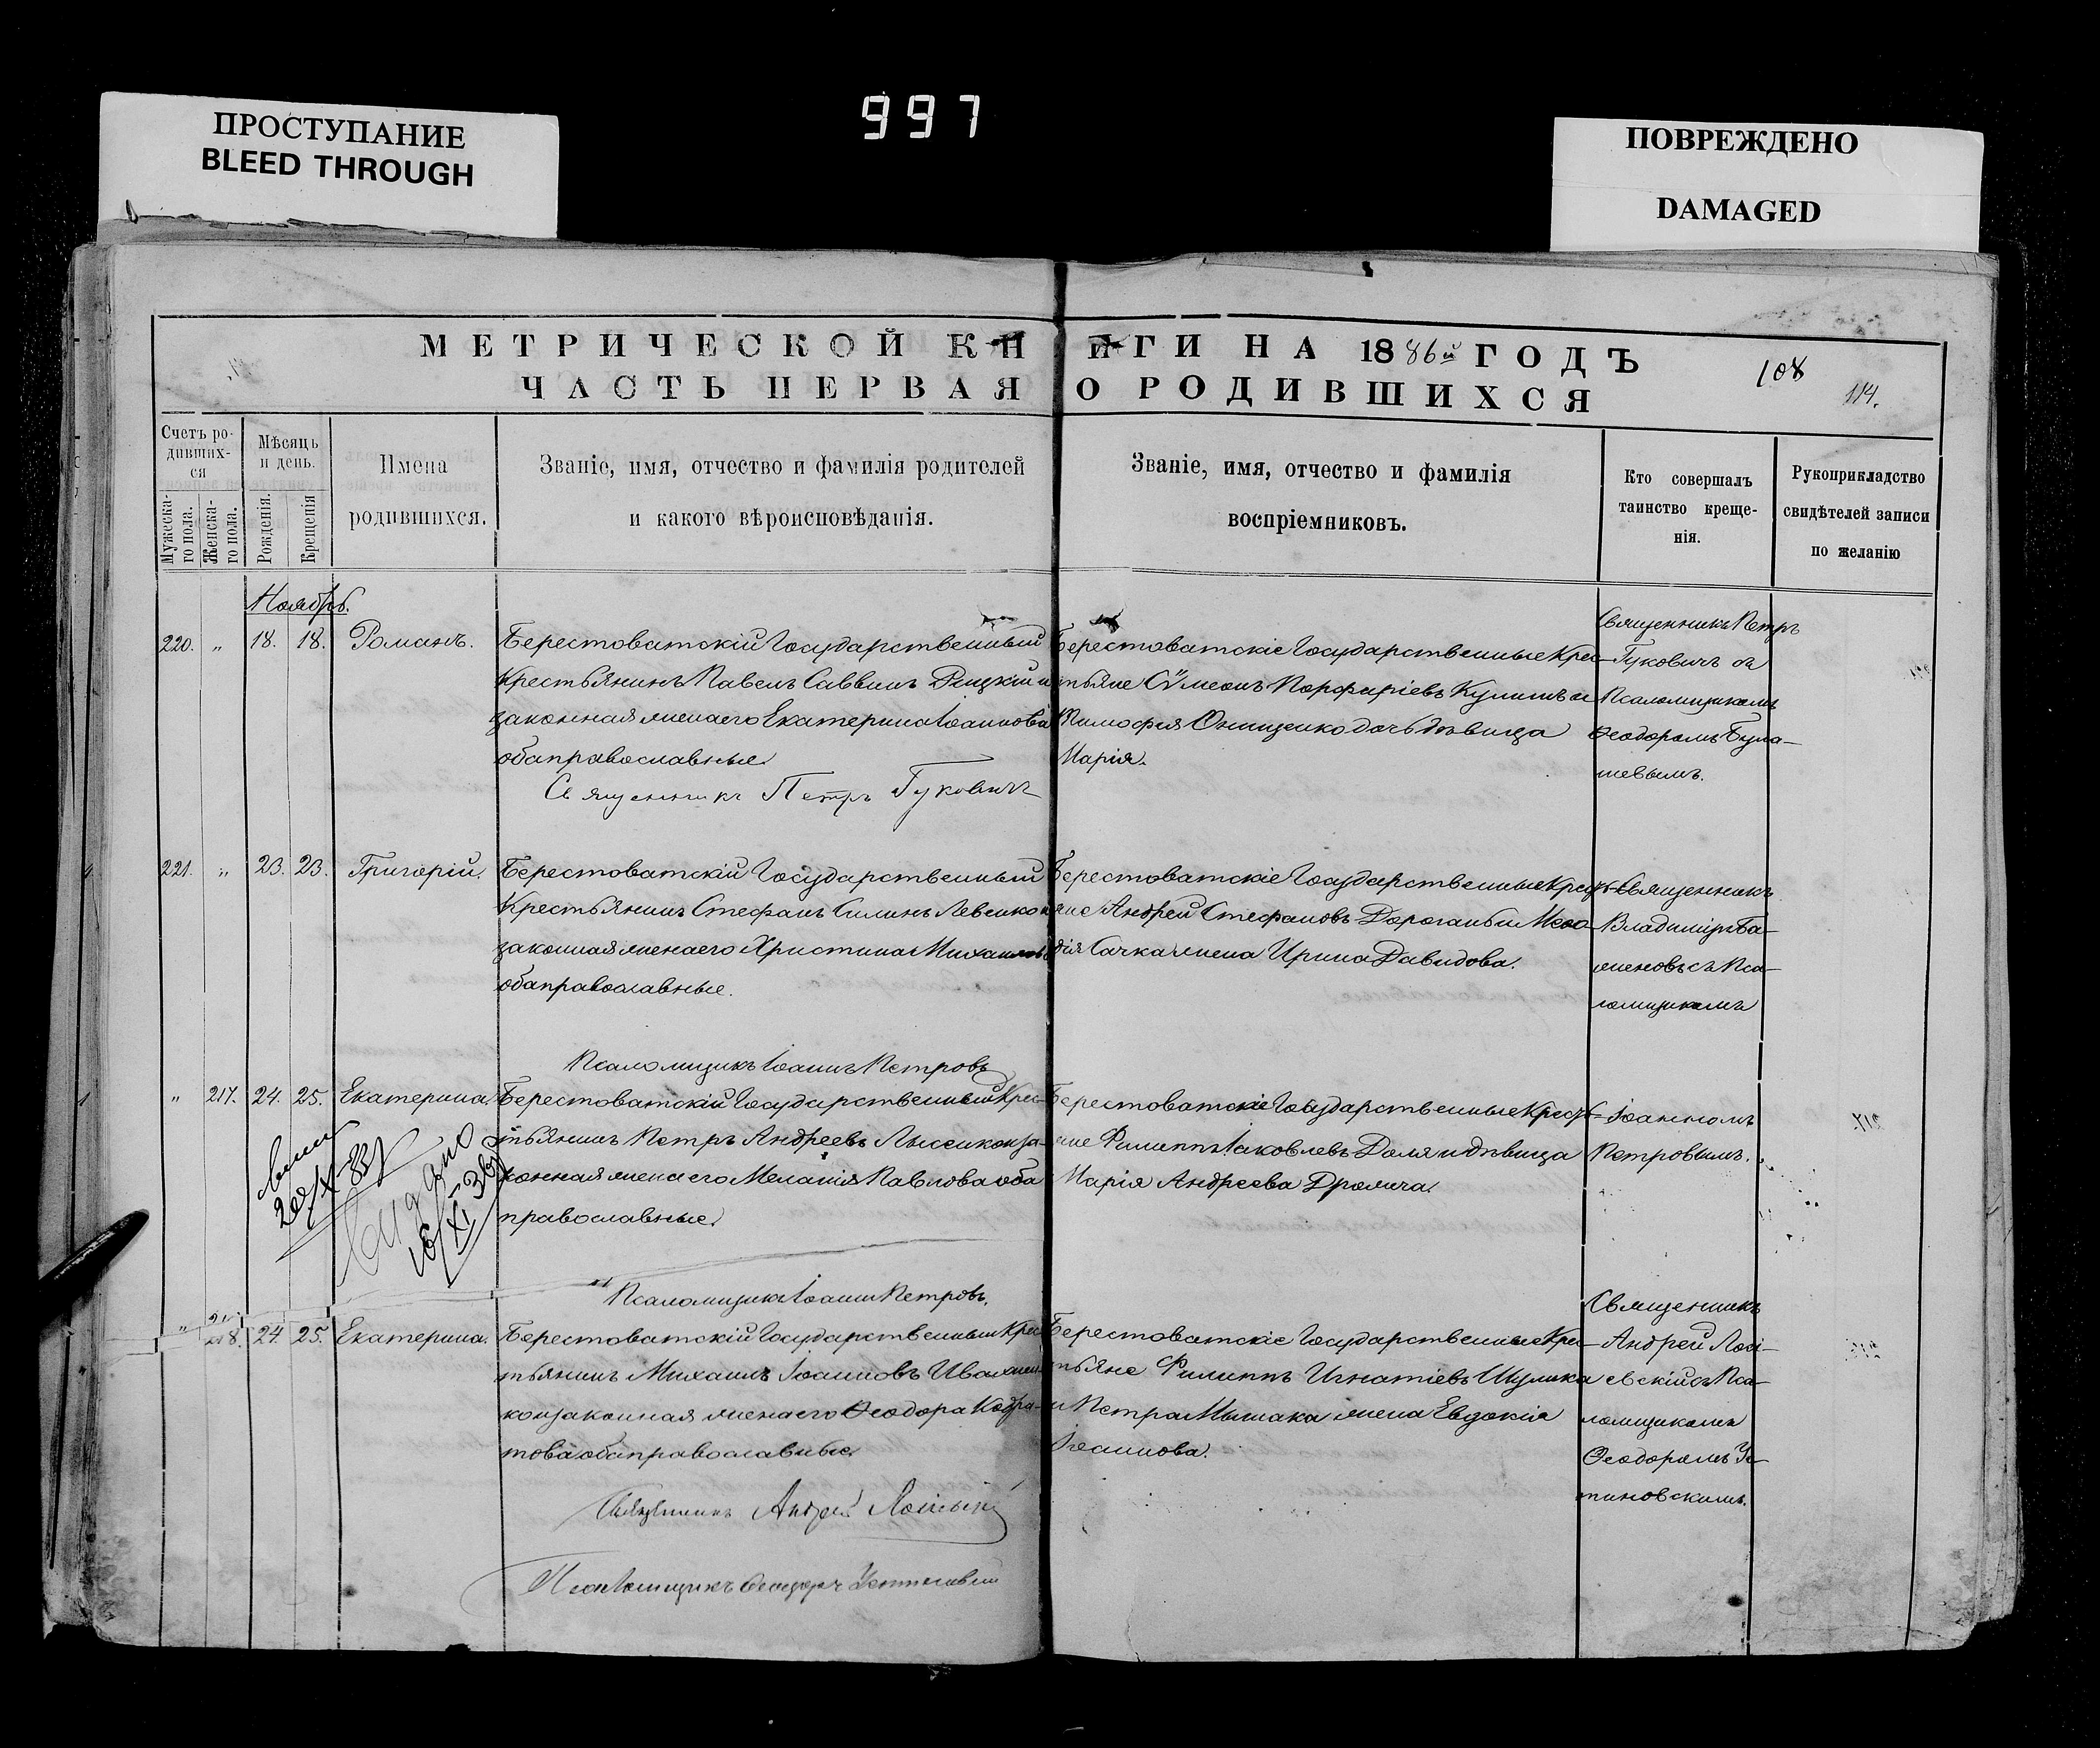 ПРОСТУПАНИЕ
BLEED THROUGH
997
ПОВРЕЖДЕНО
DAMAGED
МЕТРИЧЕСКОЙ КНИГИ НА 1886й ГОДЪ
ЧАСТЬ ПЕРВАЯ О РОДИВШИХСЯ
108
114.
Счетъ ро-
дивших-
ся
Мужеска-
го пола.
Женска-
го пола.
Мѣсяцъ
и день.
Рожденія.
Крещенія
Имена
родившихся.
Званіе, имя, отчество и фамилія родителей
и какого вѣроисповѣданія.
Званіе, имя, отчество и фамилія
воспріемниковъ.
Кто совершалъ
таинство креще-
нія.
Рукоприкладство
свидѣтелей записи
по желанію
Ноябрь.
220. „ 18. 18. Романъ.
Берестоватскій Государственный
Крестьянинъ Павелъ Саввинъ и
законная жена его Екатерина Іоаннова
оба православные.
Священникъ Петръ Гуковичъ
Берестоватскіе Государственные Крес-
тьяне Сѵмеонъ Порфиріевъ Кулишъ и
Тимофея Онищенко дочь дѣвица
Марія.
Священникъ Петръ
Гуковичъ съ
Псаломщикомъ
Ѳеодоромъ Була-
шевымъ.
221. „ 23. 23. Григорій.
Берестоватскій Государственный
Крестьянинъ Стефанъ Силинъ Левенко и
законная жена его Христина Михаилова
оба православные.
Псаломщикъ Іоаннъ Петровъ
Берестоватскіе Государственные Кресть-
яне Андрей Стефановъ Дорогань и Меѳо-
дія Сачка жена Ирина Давидова.
Священникъ
Владиміръ Ба-
женовъ съ Пса-
ломщикомъ
Іоанномъ
Петровымъ.
„ 217. 24. 25. Екатерина.
Берестоватскій Государственный Крес-
тьянинъ Петръ Андреевъ Лысенко и за-
конная жена его Меланія Павлова оба
православные.
Псаломщикъ Іоаннъ Петровъ.
Берестоватскіе Государственные Кресть-
яне Филиппъ Іаковлевъ Доля и дѣвица
Марія Андреева Дромича.
„ 218. 24. 25. Екатерина.
Берестоватскій Государственный Крес-
тьянинъ Михаилъ Іоанновъ Ивахнен-
ко и законная жена его Ѳеодора Кодра-
това оба православные.
Священникъ Андрей
Псаломщикъ Ѳеодоръ Устиновскій
Берестоватскіе Государственные Крес-
тьяне Филиппъ Игнатіевъ Шулика
и Петра Мышака жена Евдокія
Іоаннова.
Священникъ
Андрей Лосі-
евскій съ Пса-
ломщикомъ
Ѳеодоромъ Ус-
тиновскимъ.